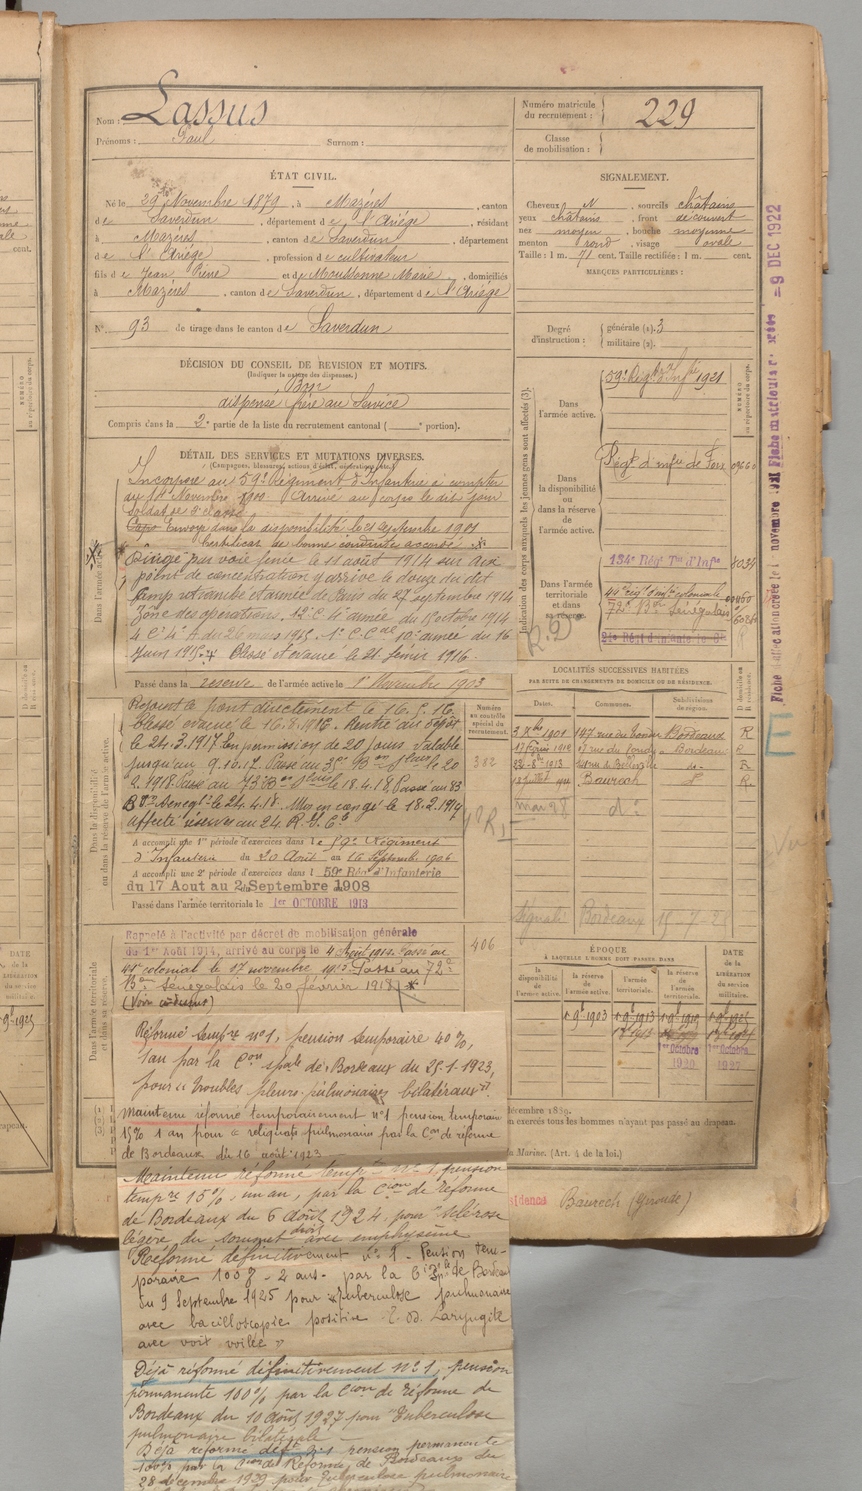 Nom : Lassus
Prénoms : Paul Surnom :
Numéro matricule
du recrutement : 229
Classe
de mobilisation :
ÉTAT CIVIL.
Né le 29 Novembre 1879, à Mazéres, canton
de Saverdun, département de l'Ariége, résidant
à Mazéres, canton de Saverdun, département
de l'Ariége, profession de cultivateur
fils de Jean Pierre et de Moussonne Marie, domiciliés
à Mazéres, canton de Saverdun, département de l'Ariége
N° 93 de tirage dans le canton de Saverdun
SIGNALEMENT.
Cheveux N, sourcils châtains
yeux châtains, front découvert
nez moyen, bouche moyenne
menton rond, visage ovale
Taille : 1 m. 71 cent. Taille rectifiée : 1 m. cent.
MARQUES PARTICULIÈRES :
Degré
d'instruction :
générale (1). 3
militaire (2).
DÉCISION DU CONSEIL DE REVISION ET MOTIFS.
(Indiquer la nature des dispenses.)
Bon
dispensé frère au Service
Compris dans la 2e partie de la liste du recrutement cantonal ( e portion).
DÉTAIL DES SERVICES ET MUTATIONS DIVERSES.
(Campagnes, blessures, actions d'éclat, décorations, etc.)
Incorporé au 59e Régiment d'Infanterie à compter
du 14 Novembre 1900. Arrivé au corps le dit jour
Soldat de 2e classe
Envoyé dans la disponibilité le 21 Septembre 1901
Certificat de bonne conduite accordé
Dirigé par voie ferrée le 11 août 1914 sur
point de concentration y arrive le douze du dit
Camp retranché et armée de Paris du 27 septembre 1914
Zône des opérations, 12e C. 4e année du 18 octobre 1914
4e C. 4e A. du 26 mars 1915. 1er C. C. 10e année du 16
Juin 1915. Blessé et évacué le 21 février 1916
Passé dans la réserve de l'armée active le 1er Novembre 1903
Rejoint le front directement le 16.5.16.
Blessé évacué le 16.8.1916. Rentré au dépôt
le 24.3.1917 En permission de 20 jours valable
2.1918. Passé au 73e Bon le 18.4.18. Passé au 83
Bon Sénégl. le 24.4.18. Mis en congé le 18.2.1919
affecté réserves au 24 R.I.C.
A accompli une 1re période d'exercices dans le 59e Régiment
d'Infanterie du 20 Août au 16 Septembre 1906
A accompli une 2e période d'exercices dans l 59e Rég. d'Infanterie
du 17 Aout au 2 Septembre 1908
Passé dans l'armée territoriale le 1er OCTOBRE 1913
Numéro
au contrôle
spécial du
recrutement.
382
406
Rappelé à l'activité par décret de mobilisation générale
du 1er Août 1914, arrivé au corps le 4 Août 1914. Passé au
colonial le 17 novembre 1915. Passé au 72e
Bon Sénégalais le 20 février 1918
(Voir ci-dessus)
Réformé tempre n°1, pension temporaire 40%,
1 an par la Con spéle de Bordeaux du 25.1.1923,
pour "troubles pleuro-pulmonaires bilatéraux".
Maintenu réformé temporairement n°1 pension temporaire
15% 1 an pour "reliquats pulmonaires par la Con de réforme
de Bordeaux du 16 août 1923
Maintenu réformé tempre n° 1, pension
tempre 15%, un an, par la Cion de réforme
de Bordeaux du 6 Août 1924 pour "sclérose
légère du sommet droit avec emphysème
Réformé définitivement n° 1. Pension tem-
poraire 100% - 2 ans - par la Con Sple de Bordeaux
du 9 Septembre 1925 pour "tuberculose pulmonaire
avec bacilloscopie positive Laryngite
avec voix voilée"
Déjà réformé définitivement n°1, pension
permanente 100% par la Con de réforme de
Bordeaux du 10 Août 1927 pour "Tuberculose
pulmonaire bilatérale
Déjà réformé déft n°1 pension permanente
100% par la Con de Réforme de Bordeaux du
28 décembre 1929 pour Tuberculose pulmonaire
Indication des corps auxquels les jeunes gens sont affectés (3).
Dans
l'armée active.
59e Régt d'Infie 1921
Dans
la disponibilité
ou dans la réserve
de l'armée active.
Régt d'infie de Foix
Dans l'armée
territoriale
et dans
sa réserve.
134e Régt Tal d'Infie
8034
72e Bon Sénégalais
NUMÉRO
au répertoire du corps.
LOCALITÉS SUCCESSIVES HABITÉES
PAR SUITE DE CHANGEMENTS DE DOMICILE OU DE RÉSIDENCE.
Dates. Communes. Subdivisions
de région. D domicile ou
R résidence.
3 Xbre 1901 147 rue Bordeaux R
17 février 1912 17 rue Bordeaux R
1913 rue de do R
Baurech do R
mai 28 do
Signalé Bordeaux 15-7-28
ÉPOQUE
À LAQUELLE L'HOMME DOIT PASSER DANS
la
disponibilité
de l'armée active.
la réserve
de
l'armée active.
l'armée
territoriale.
la réserve
de l'armée
territoriale.
DATE
de la
LIBÉRATION
du service
militaire.
1er 9bre 1903 1er 9bre 1913 1er 9bre 1919 1er 9bre 1925
1er Octobre
1920
1er Octobre
1927
décembre 1889.
on exercés tous les hommes n'ayant pas passé au drapeau.
la Marine. (Art. 4 de la loi.)
sidence Baurech (Gironde)
Fiche matricule
-9 DEC 1922
Dans l'armée active
Dans la disponibilité
ou dans la réserve de l'armée active.
Dans l'armée territoriale